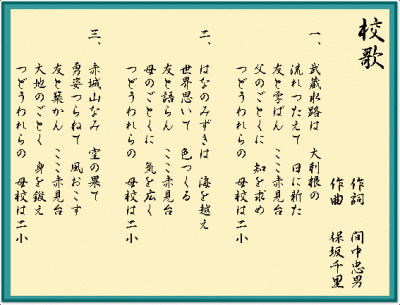 校歌
作詞 間中忠男
作曲 保坂千里
一、武蔵水路は 大利根の
流れつたえて 日に新た
友と学ばん ここ赤見台
父のごとくに 知を求め
つどうわれらの 母校は二小
二、はなのみずきは 海を越え
世界思いて 色つくる
友と語らん ここ赤見台
母のごとくに 気を広く
つどうわれらの 母校は二小
三、赤城山なみ 空の果て
勇姿つらねて 風おこす
友と築かん ここ赤見台
大地のごとく 身を鍛え
つどうわれらの 母校は二小